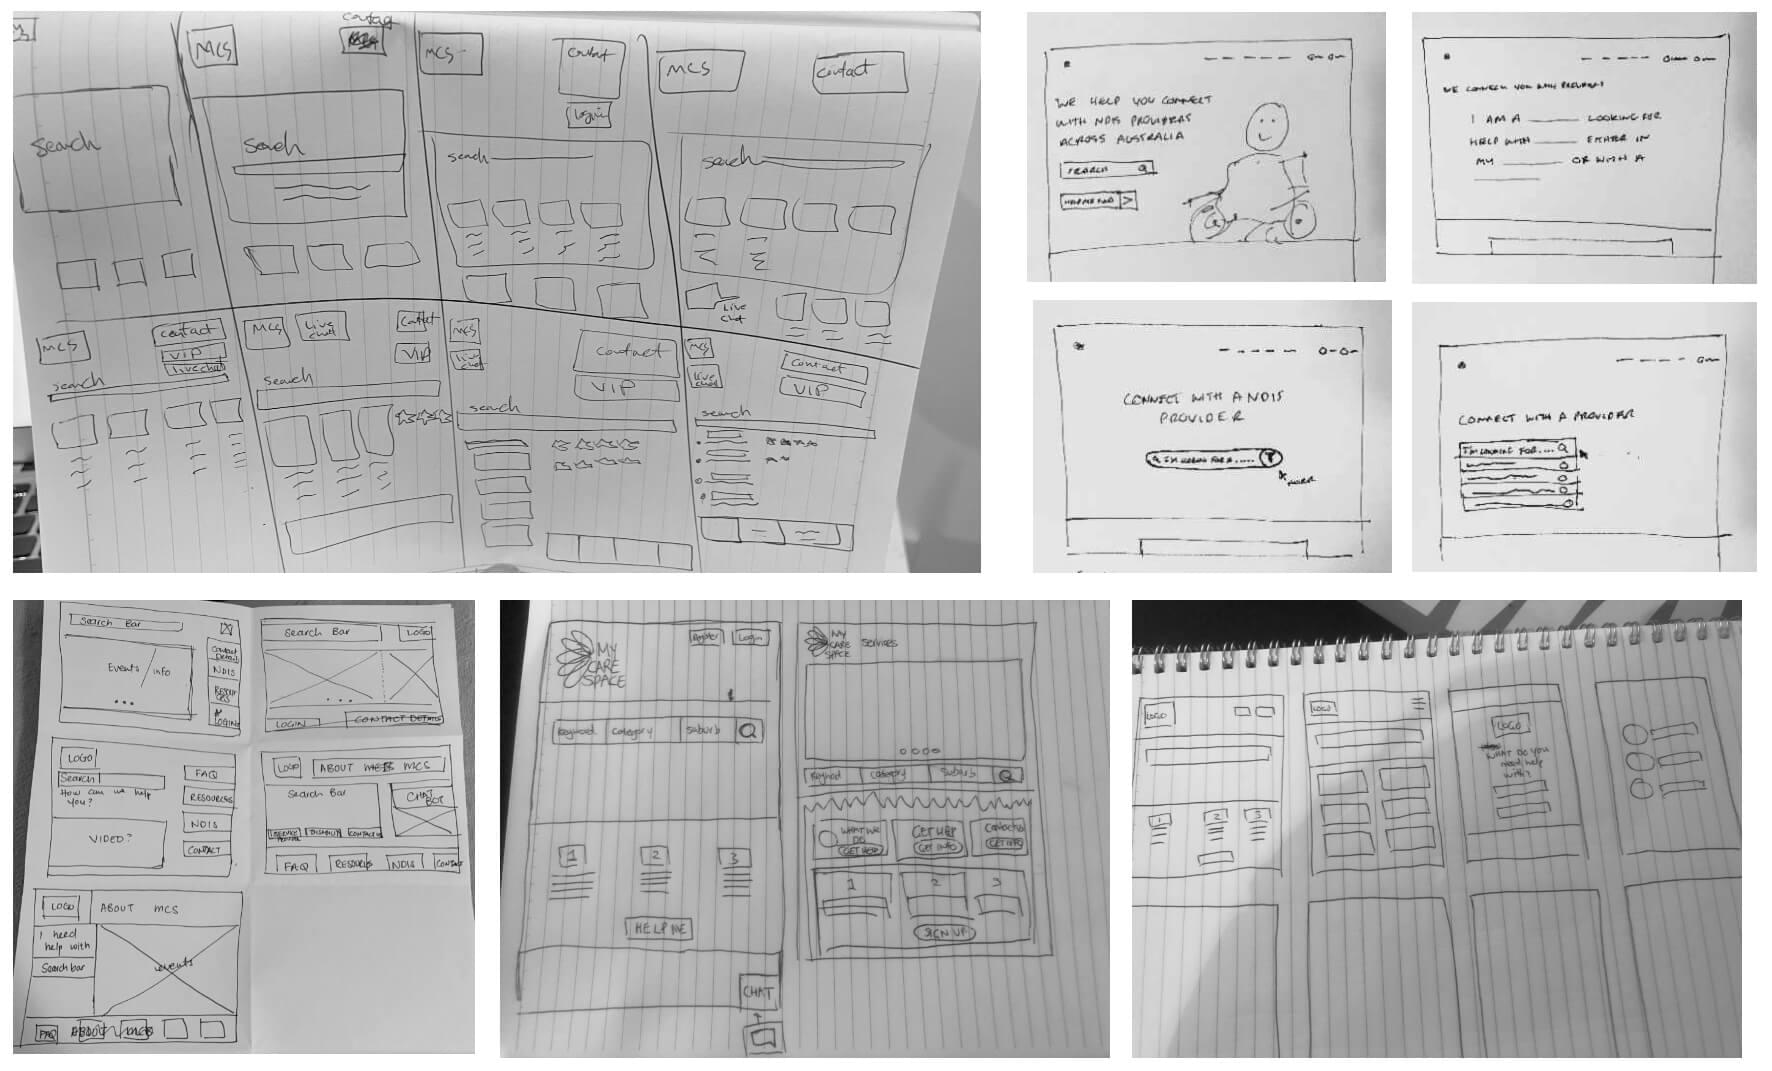 MCS
contact
MCS
contact
MCS
contact
login
search
search
search
search
MCS
contact
VIP
live chat
search
MCS
Live
chat
VIP
search
MCS
live
contact
VIP
search
MCS
live
chat
contact
VIP
search
Live
chat
WE HELP YOU CONNECT
WITH NDIS PROVIDERS
ACROSS AUSTRALIA
SEARCH
HELP ME FIND >
WE CONNECT YOU WITH PROVIDERS
I AM A ______ LOOKING FOR
HELP WITH ______ EITHER IN
MY ______ OR WITH A
CONNECT WITH A NDIS
PROVIDER
I'M LOOKING FOR A .....
CONNECT WITH A PROVIDER
I'M LOOKING FOR....
Search Bar
Events / info
Contact
Details
NDIS
LOGIN
Search Bar
LOGO
LOGIN
CONTACT DETAILS
LOGO
Search
How can we help
you?
VIDEO?
FAQ
RESOURCES
NDIS
CONTACT
LOGO
ABOUT MCS
Search Bar
CHAT
BOT
FAQ
RESOURCES
NDIS
LOGO
ABOUT MCS
I need
help with
Search bar
events
FAQ
ABOUT
MY
CARE
SPACE
Register
Login
keyword
category
suburb
1
2
3
HELP ME
CHAT
MY
CARE
SPACE
Services
keyword
category
suburb
WHAT WE
DO
GET HELP
GET HELP
GET INFO
GET INFO
1
2
3
SIGN UP
LOGO
1
2
3
LOGO
LOGO
WHAT DO YOU
need help
with?